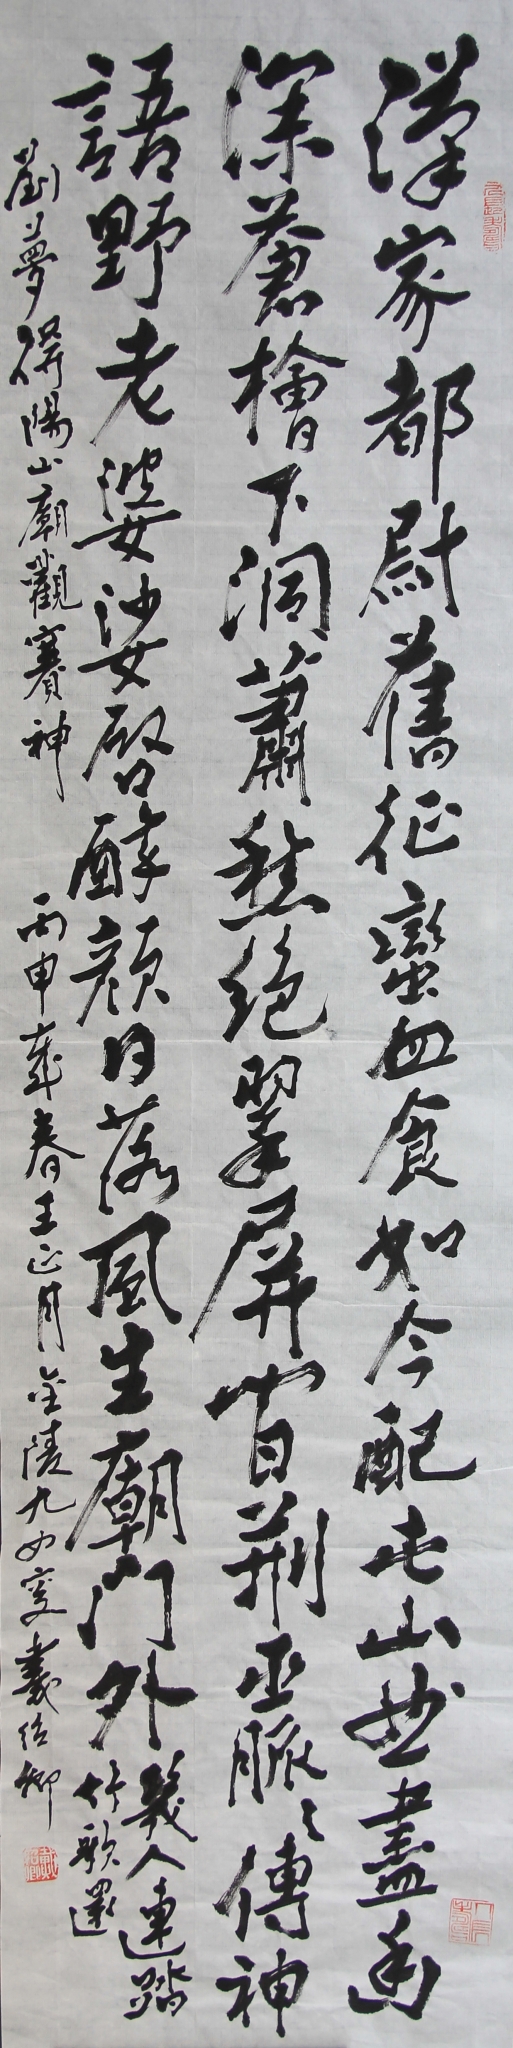 漢家都尉舊征蠻血食如今配此山曲盡幽
深蒼檜下洞簫愁絕翠屏間荊巫脈々傳神
語野老婆娑啓醉顏日落風生廟門外幾人連踏
竹歌還
劉夢得陽山廟觀賽神
丙申年春王正月金陵九四叟戴紹卿